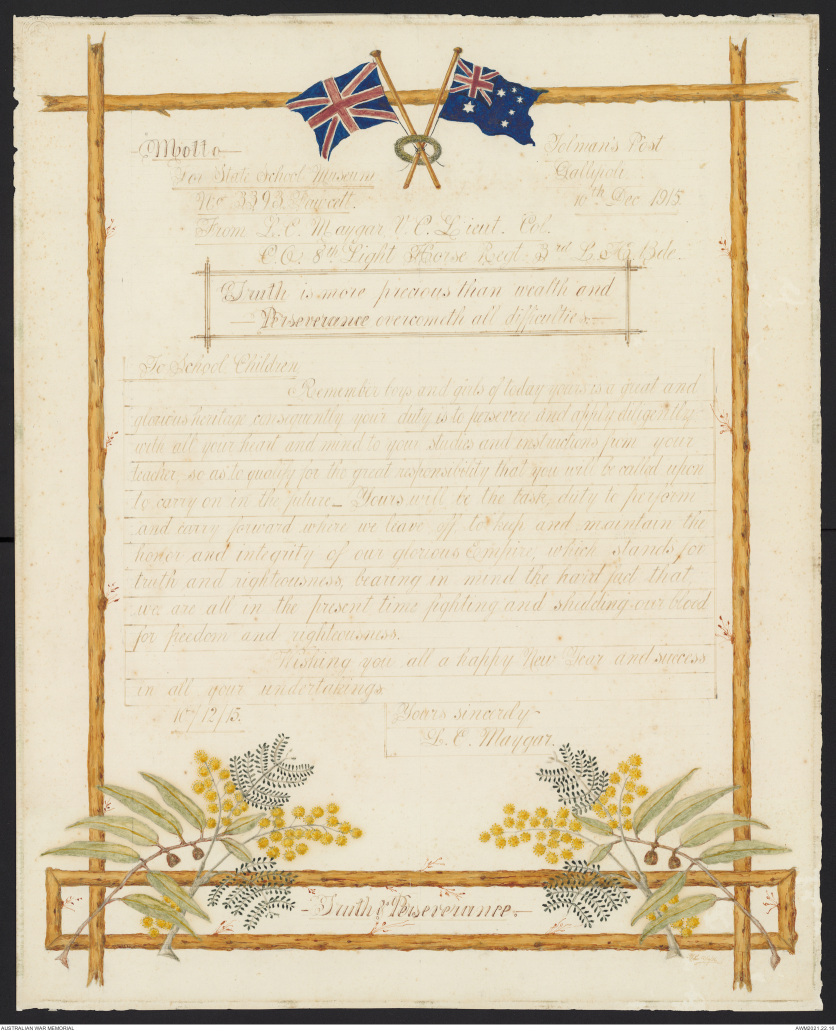 Motto
For State School Museum
No. 3393 Fawcett.
Telman's Post
Gallipoli
10th Dec 1915.
From L. C. Maygar V.C. Lieut. Col.
C.O. 8th Light Horse Regt. 3rd L. H. Bde.
Truth is more precious than wealth and
Perseverance overcometh all difficulties
To School Children
Remember boys and girls of today yours is a great and
glorious heritage consequently your duty is to persevere and apply diligently
with all your heart and mind to your studies and instructions from your
teacher, so as to qualify for the great responsibility that you will be called upon
to carry on in the future_ Yours will be the task, duty to perform
and carry forward where we leave off to keep and maintain the
honor and integrity of our glorious Empire, which stands for
truth and righteousness, bearing in mind the hard fact that
we are all in the present time fighting and shedding our blood
for freedom and righteousness.
Wishing you all a happy New Year and success
in all your undertakings
10/12/15.
Yours sincerely
L. C. Maygar.
Truth & Perseverance
AUSTRALIAN WAR MEMORIAL
AWM2021.22.16